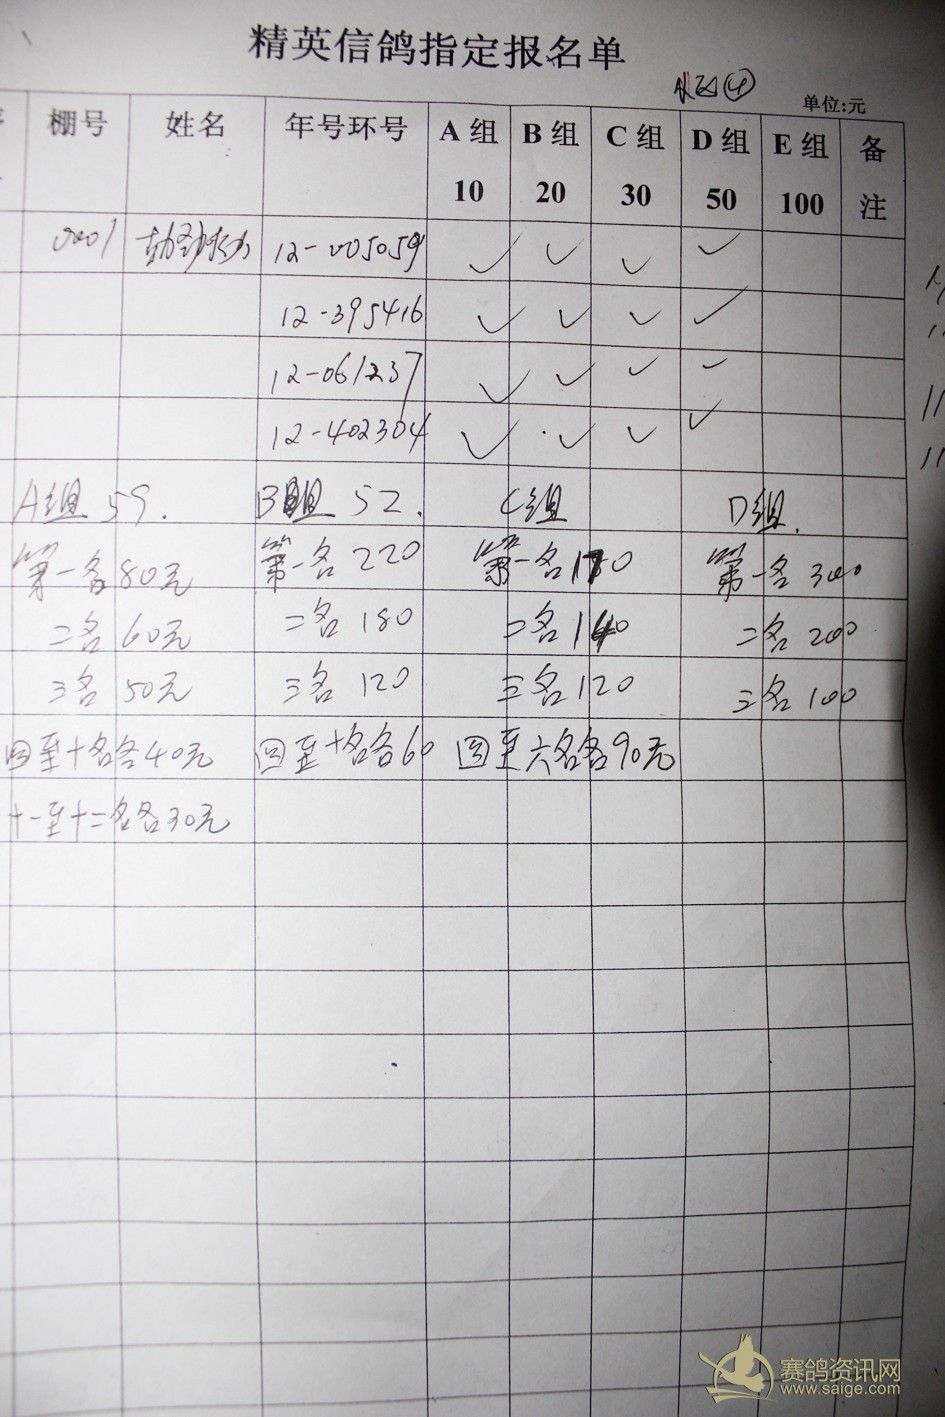 精英信鸽指定报名单
④ 单位:元
棚号 姓名 年号环号 A组 B组 C组 D组 E组 备
10 20 30 50 100 注
0001 12-005059 ✓ ✓ ✓ ✓
12-395416 ✓ ✓ ✓ ✓
12-061237 ✓ ✓ ✓ ✓
12-402304 ✓ ✓ ✓ ✓
A组 59. B组 52. C组 D组.
第一名80元 第一名220 第一名180 第一名300
二名60元 二名180 二名140 二名200
三名50元 三名120 三名120 三名100
四至十名各40元 四至十名各60 四至六名各90元
十一至十二名各30元
赛鸽资讯网
www.saige.com